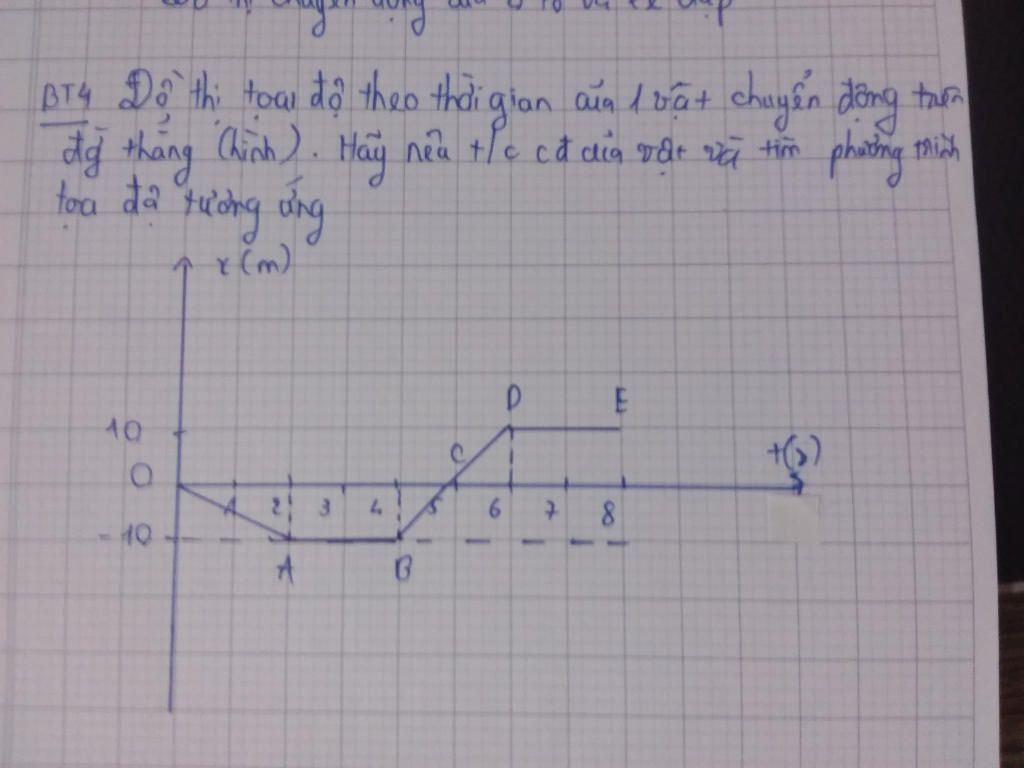 BT4 Đồ thị tọa độ theo thời gian của 1 vật chuyển động trên
đg thẳng (hình). Hãy nêu t/c cđ của vật và tìm phương trình
tọa độ tương ứng
x(m)
D E
10
C
t(s)
0
1 2 3 4 5 6 7 8
-10
A B